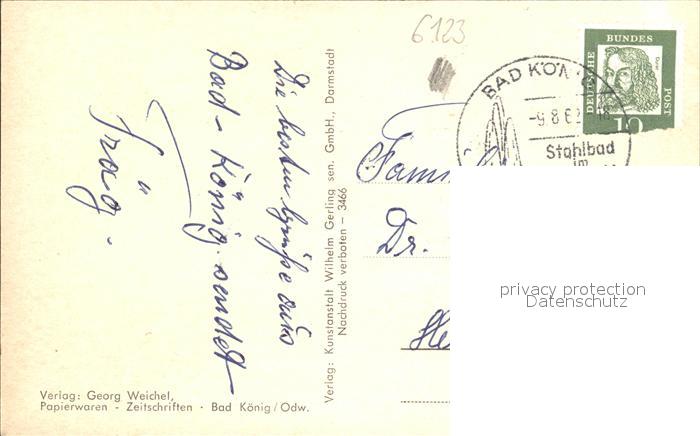 6123
DEUTSCHE
BUNDES
POST
Dürer
10
BAD KÖNIG
-9.8.62
Stahlbad
im
Die besten Grüße aus
Bad-König sendet
Familie
Dr.
Verlag: Kunstanstalt Wilhelm Gerling sen. GmbH., Darmstadt
Nachdruck verboten – 3466
privacy protection
Datenschutz
Verlag: Georg Weichel,
Papierwaren - Zeitschriften · Bad König/Odw.